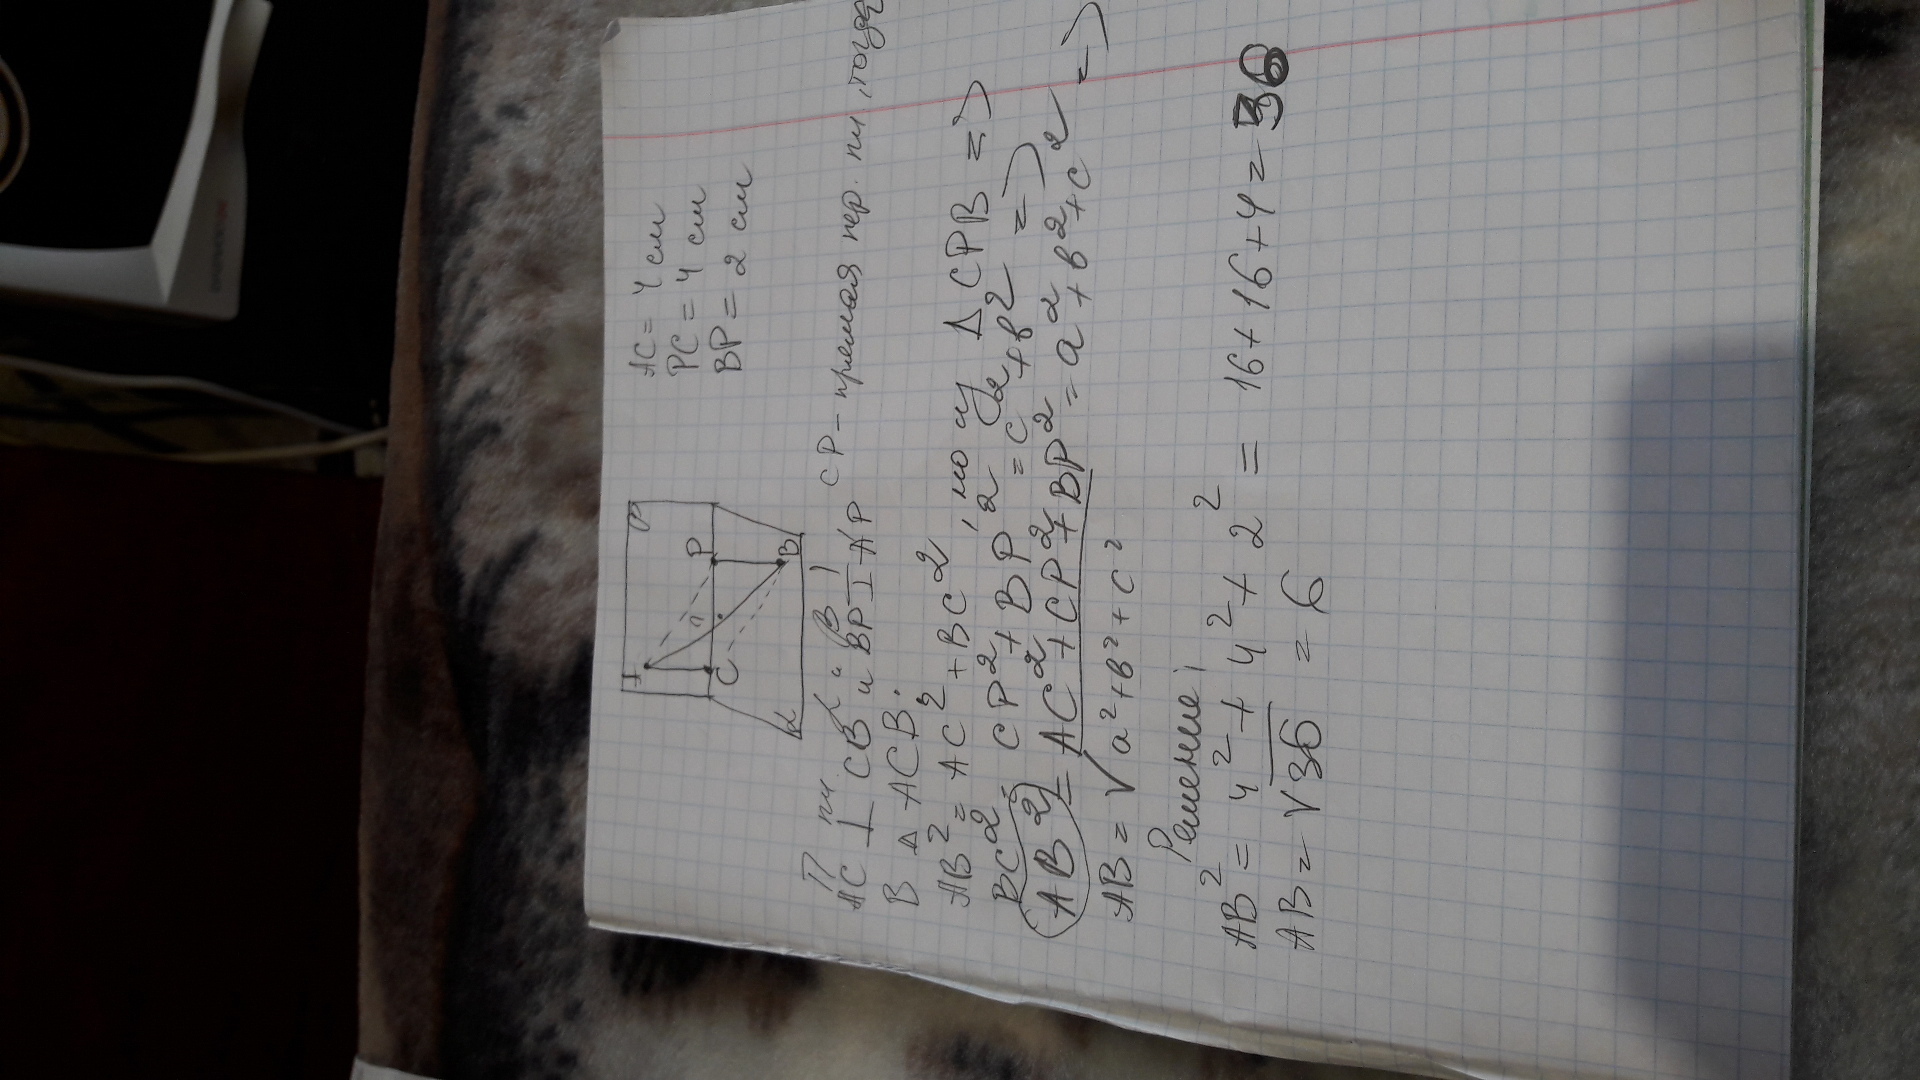 AC = 4 см
PC = 4 см
BP = 2 см
A
P
C
B
α
β
Пл α и β, CP – прямая пер. пл, тогда
AC ⊥ CB и BP ⊥ AP
В Δ ACB:
AB² = AC² + BC², но из Δ CPB =>
BC² = CP² + BP² = c² + b² =>
AB² = AC² + CP² + BP² = a² + b² + c² =>
AB = √a² + b² + c²
Решение:
AB² = 4² + 4² + 2² = 16 + 16 + 4 = 36
AB = √36 = 6